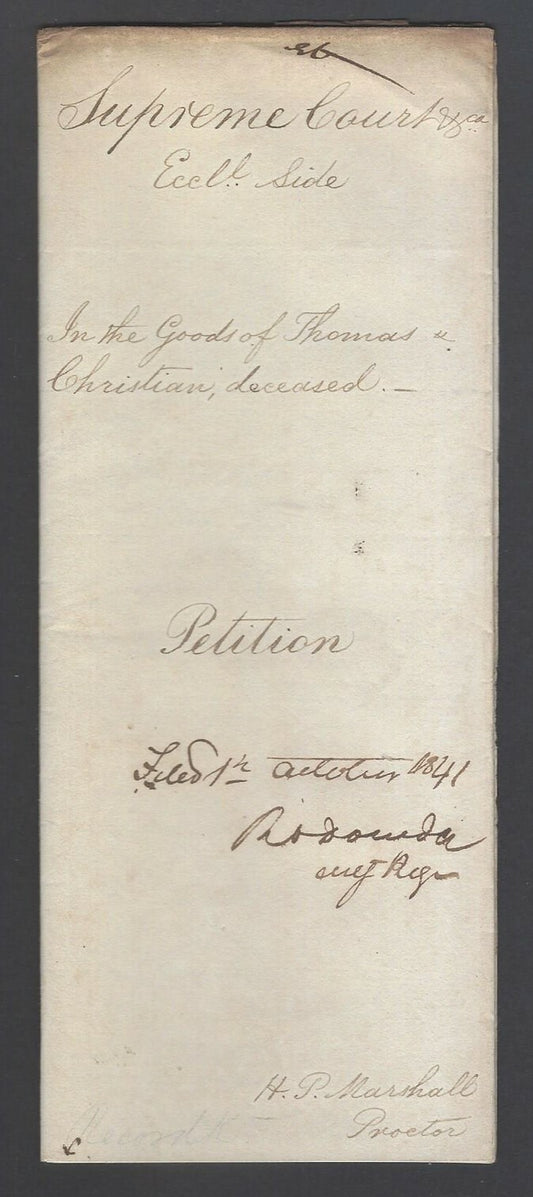 Supreme Court &ca
Eccl.l Side
In the Goods of Thomas
Christian, deceased. —
Petition
Filed 1st October 1841
Reg
H. P. Marshall
Proctor